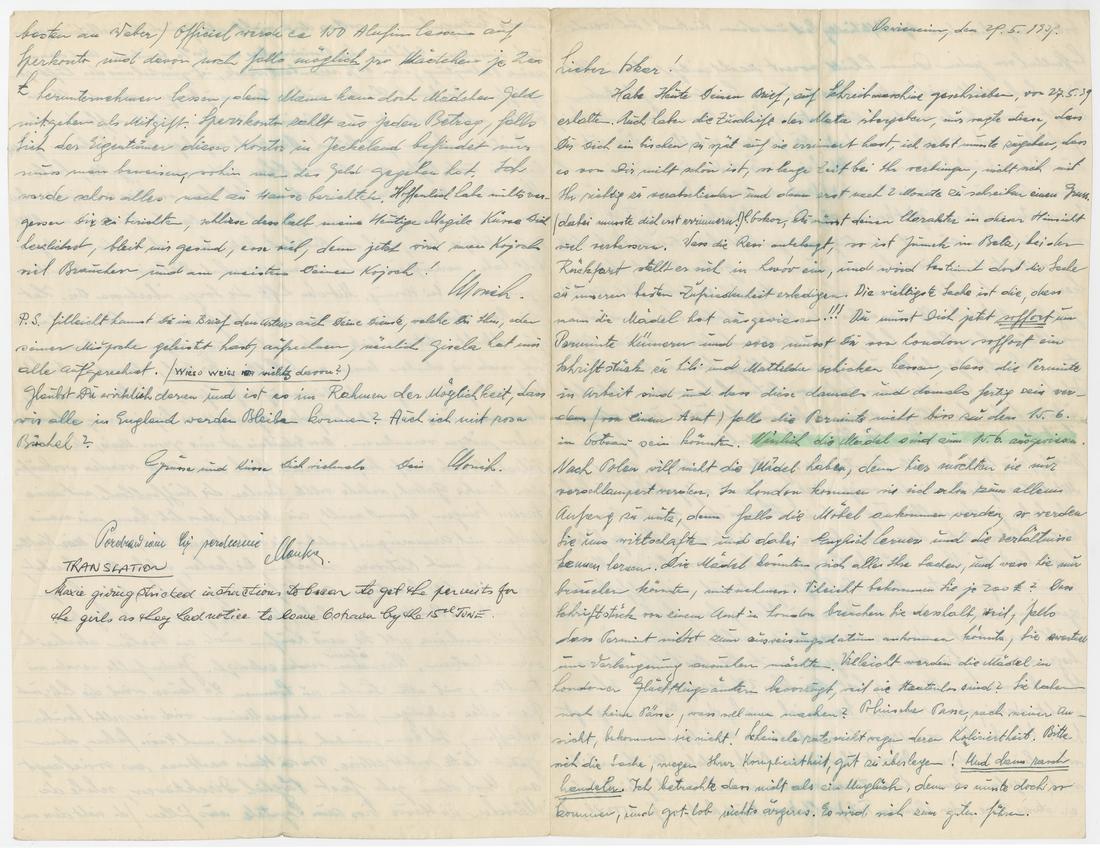 Oswiecim, den 29.5.1939.
Lieber Oskar!
Habe Heute Deinen Brief, auf Schreibmaschine geschrieben, vor 27.5.39
erhalten. Auch habe die Zuschrift der Meta übergeben, uns sagte diese, dass
Du Dich ein bischen zu spät auf sie erinnert hast, ich selbst musste zugeben, dass
es von Dir nicht schön ist, so lange Zeit bei Ihr verbringen, nicht sich mit
Ihr richtig zu verabschieden und dann erst nach 2 Monate zu schreiben einen Gruss,
(dabei musste dich erst erinnern!) Oskar, Du musst deinen Charakter in dieser Hinsicht
viel verbessern. Was die Resi anbelangt, so ist Jumek in Belz, bei der
Rückfart stellt er sich in Lwów ein, und wird bestimmt dort die Sache
zu unseren besten Zufriedenheit erledigen. Die wichtigste Sache ist die, dass
man die Mädel hat ausgewiesen!!! Du musst Dich jetzt soffort um
Permite kümmern und zwar musst Du von London soffort ein
Schriftstück zu Lili und Mathilde schicken lassen, dass die Permite
in Arbeit sind und dass diese damals und damals fertig sein wer-
den (von einem Amt) falls die Permite nicht bis zu den 15.6.
in Ostrau sein könnten. Nämlich die Mädel sind zum 15.6. ausgewiesen.
Nach Polen will nicht die Mädel haben, denn hier möchten sie nur
verschlampert werden. In London kommen sie sich schon zum allem
Anfang zu nutz, denn falls die Möbel ankommen werden, so werden
Sie uns wirtschaften und dabei Englisch lernen und die Verhältnisse
kennen lernen. Die Mädel könnten sich alles Ihre Sachen, und was Sie nur
brauchen könnten, mitnehmen. Villeicht bekommen Sie je 200 £? Das
Schriftstück von einem Amt in London brauchen Sie desshalb, weil, falls
dass Permit nicht zum Ausweisungsdatum ankommen könnte, Sie eventuel
um Verlängerung ansuchen möchten. Villeicht werden die Mädel in
Londoner Flüchtlingsämtern bevorzugt, weil sie Staatenlos sind? Sie haben
noch keine Pässe, was soll man machen? Polnische Pässe, nach meiner An-
sicht, bekommen sie nicht! Bitte
sich die Sache, wegen Ihrer Kompliciertheit, gut zu überlegen! Und dann rasch
handeln. Ich betrachte dass nicht als ein Unglück, denn es musste doch so
kommen, und gotlob nichts ärgeres. Es wird sich zum guten führen.
besten an Weber) Officiel würde ca 150 Alufen lassen auf
Sperkonto und davon noch falls möglich pro Mädchen je 200
£ herunternehmen lassen, denn Mama kann doch Mädchen Geld
mitgeben als Mitgift. Sperrkonto zahlt aus jeden Betrag, falls
sich der Eigentümer dieses Konto in Jecheland befindet nur
muss man beweisen, wohin man das Geld gegeben hat. Ich
werde schon alles nach zu Hause berichten. Hoffentlich habe nichts ver-
gessen Dir zu berichten, schliesse desshalb meine Heutige Megile Küsse Dich
herzlichst, bleib uns gesund, esse viel, denn jetzt wird man Kojech
viel Brauchen und am meisten Deinen Kojech!
Monik.
P.S. Filleicht kannst Du in Brief den Artess auch Deine Dienste, welche Du Ihm, oder
seiner Mischpoche geleistet hast, aufnehmen, nämlich Gisela hat uns
alle aufgerechnet. (Wieso weiss er nichts davon?)
Glaubst Du wirklich daran und ist es im Rahmen der Möglichkeit, dass
wir alle in England werden Bleiben können? Auch ich mit rosa
Büchel?
Grüsse und küsse Dich vielmals Dein Monik.
Pozdrawiam Cię serdecznie
TRANSLATION
giving instructions to Oscar to get the permits for
the girls as they had notice to leave Ostrava by the 15th JUNE.